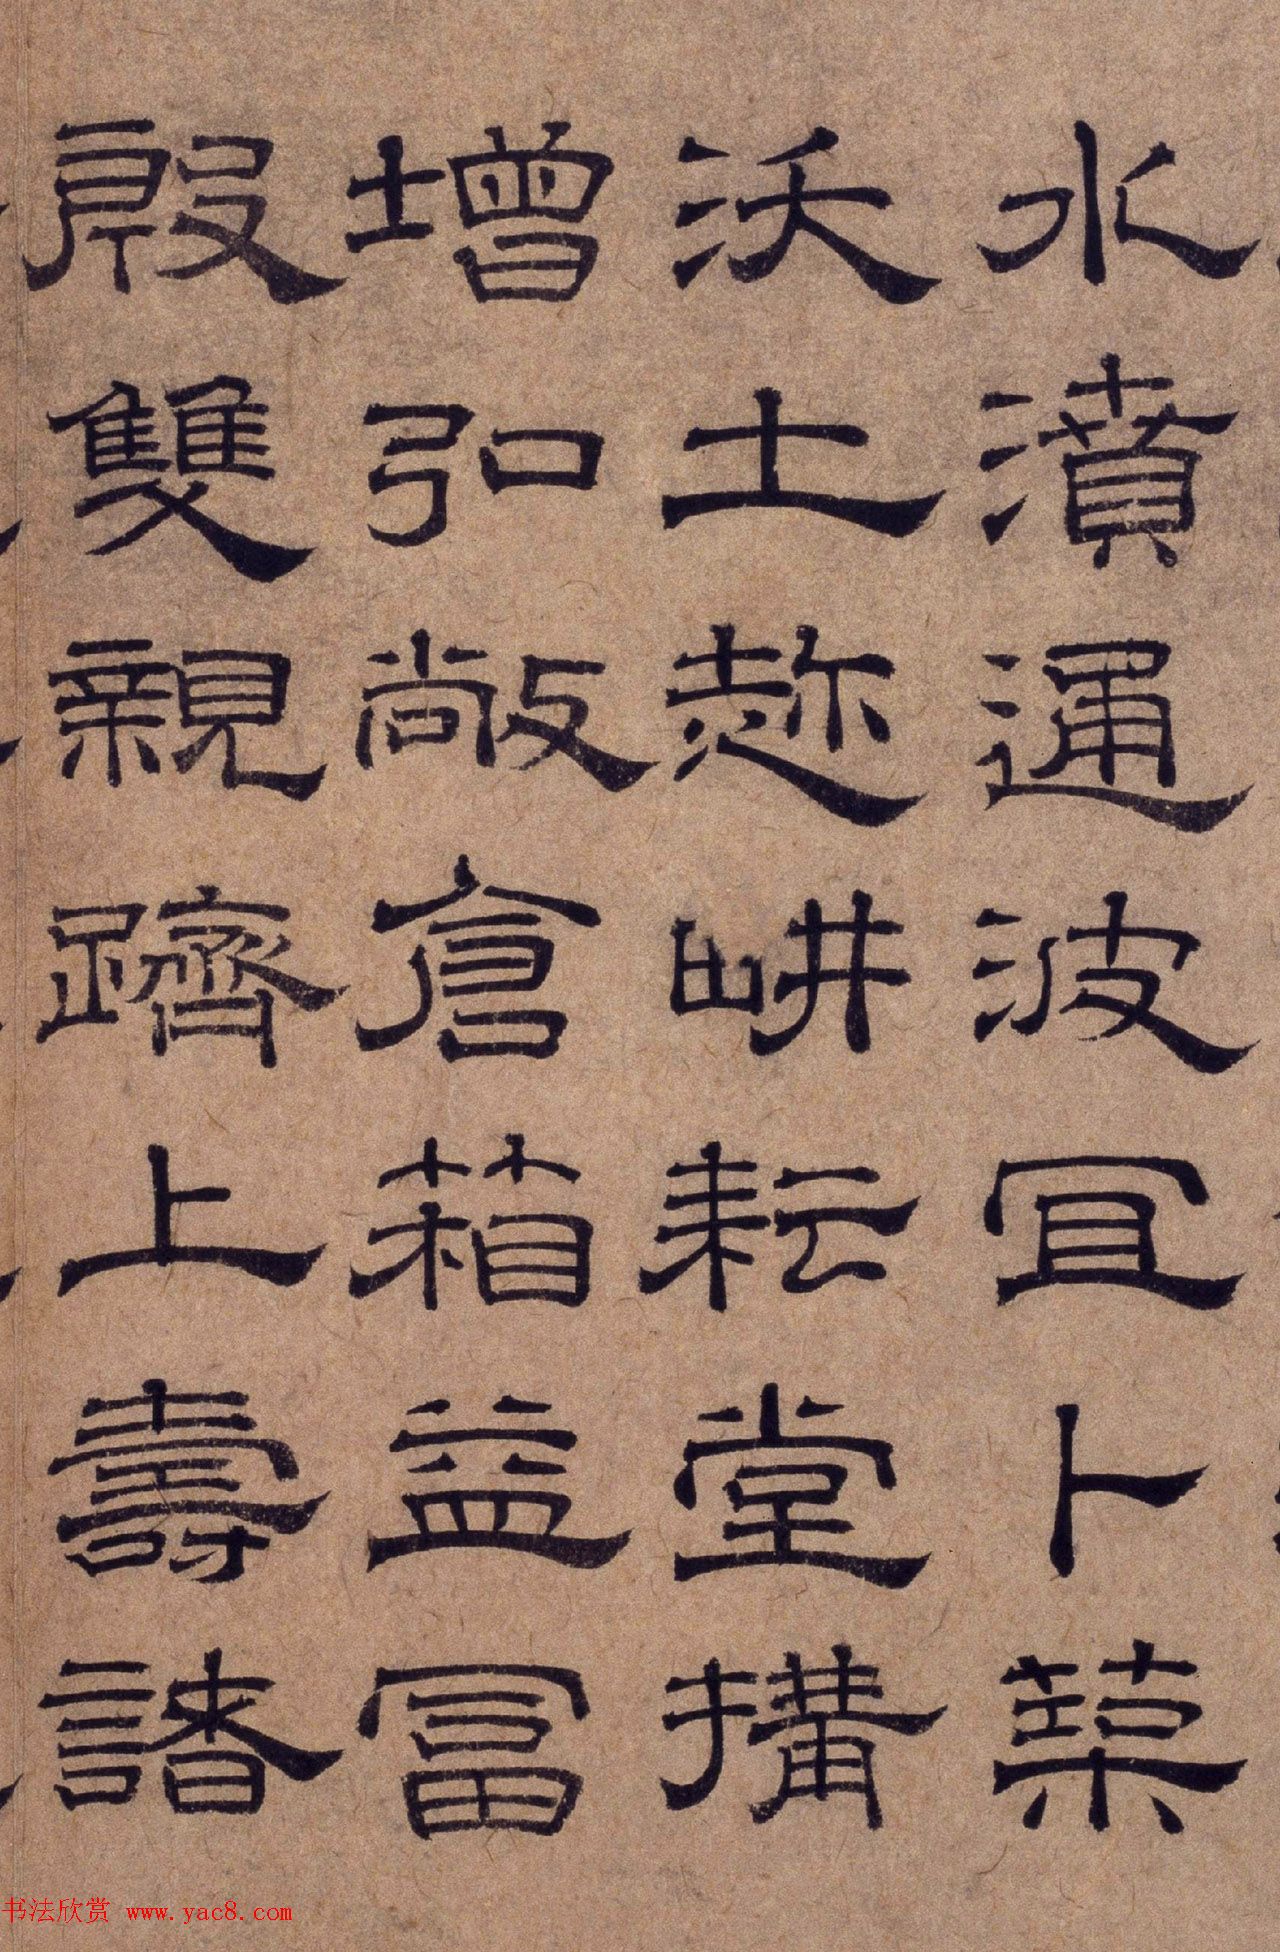 水濆通波宜卜築
沃土趂畊耘堂搆
增弘敞倉箱益冨
殷雙親躋上壽諸
书法欣赏 www.yac8.com